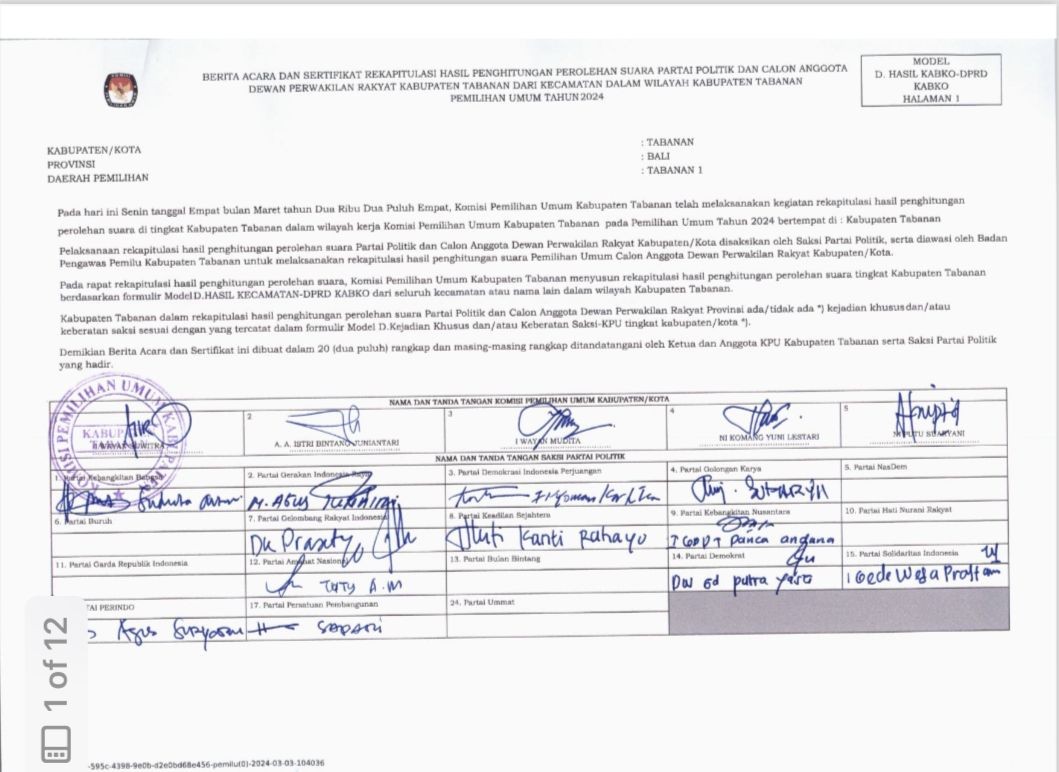 BERITA ACARA DAN SERTIFIKAT REKAPITULASI HASIL PENGHITUNGAN PEROLEHAN SUARA PARTAI POLITIK DAN CALON ANGGOTA
DEWAN PERWAKILAN RAKYAT KABUPATEN TABANAN DARI KECAMATAN DALAM WILAYAH KABUPATEN TABANAN
PEMILIHAN UMUM TAHUN 2024
MODEL
D. HASIL KABKO-DPRD
KABKO
HALAMAN 1
KABUPATEN/KOTA : TABANAN
PROVINSI : BALI
DAERAH PEMILIHAN : TABANAN 1
Pada hari ini Senin tanggal Empat bulan Maret tahun Dua Ribu Dua Puluh Empat, Komisi Pemilihan Umum Kabupaten Tabanan telah melaksanakan kegiatan rekapitulasi hasil penghitungan
perolehan suara di tingkat Kabupaten Tabanan dalam wilayah kerja Komisi Pemilihan Umum Kabupaten Tabanan pada Pemilihan Umum Tahun 2024 bertempat di : Kabupaten Tabanan
Pelaksanaan rekapitulasi hasil penghitungan perolehan suara Partai Politik dan Calon Anggota Dewan Perwakilan Rakyat Kabupaten/Kota disaksikan oleh Saksi Partai Politik, serta diawasi oleh Badan
Pengawas Pemilu Kabupaten Tabanan untuk melaksanakan rekapitulasi hasil penghitungan suara Pemilihan Umum Calon Anggota Dewan Perwakilan Rakyat Kabupaten/Kota.
Pada rapat rekapitulasi hasil penghitungan perolehan suara, Komisi Pemilihan Umum Kabupaten Tabanan menyusun rekapitulasi hasil penghitungan perolehan suara tingkat Kabupaten Tabanan
berdasarkan formulir Model D.HASIL KECAMATAN-DPRD KABKO dari seluruh kecamatan atau nama lain dalam wilayah Kabupaten Tabanan.
Kabupaten Tabanan dalam rekapitulasi hasil penghitungan perolehan suara Partai Politik dan Calon Anggota Dewan Perwakilan Rakyat Provinsi ada/tidak ada *) kejadian khusus dan/atau
keberatan saksi sesuai dengan yang tercatat dalam formulir Model D.Kejadian Khusus dan/atau Keberatan Saksi-KPU tingkat kabupaten/kota *).
Demikian Berita Acara dan Sertifikat ini dibuat dalam 20 (dua puluh) rangkap dan masing-masing rangkap ditandatangani oleh Ketua dan Anggota KPU Kabupaten Tabanan serta Saksi Partai Politik
yang hadir.
NAMA DAN TANDA TANGAN KOMISI PEMILIHAN UMUM KABUPATEN/KOTA
2 3 4 5
A. A. ISTRI BINTANG JUNIANTARI I WAYAN MUDITA NI KOMANG YUNI LESTARI
NAMA DAN TANDA TANGAN SAKSI PARTAI POLITIK
1. Partai Kebangkitan Bangsa 2. Partai Gerakan Indonesia Raya 3. Partai Demokrasi Indonesia Perjuangan 4. Partai Golongan Karya 5. Partai NasDem
6. Partai Buruh 7. Partai Gelombang Rakyat Indonesia 8. Partai Keadilan Sejahtera 9. Partai Kebangkitan Nusantara 10. Partai Hati Nurani Rakyat
Kanti Rahayu Panca
11. Partai Garda Republik Indonesia 12. Partai Amanat Nasional 13. Partai Bulan Bintang 14. Partai Demokrat 15. Partai Solidaritas Indonesia
TUTY A.M putra
PERINDO 17. Partai Persatuan Pembangunan 24. Partai Ummat
Agus
-595c-4398-9e0b-d2e0bd68e456-pemilu(0)-2024-03-03-104036
1 of 12